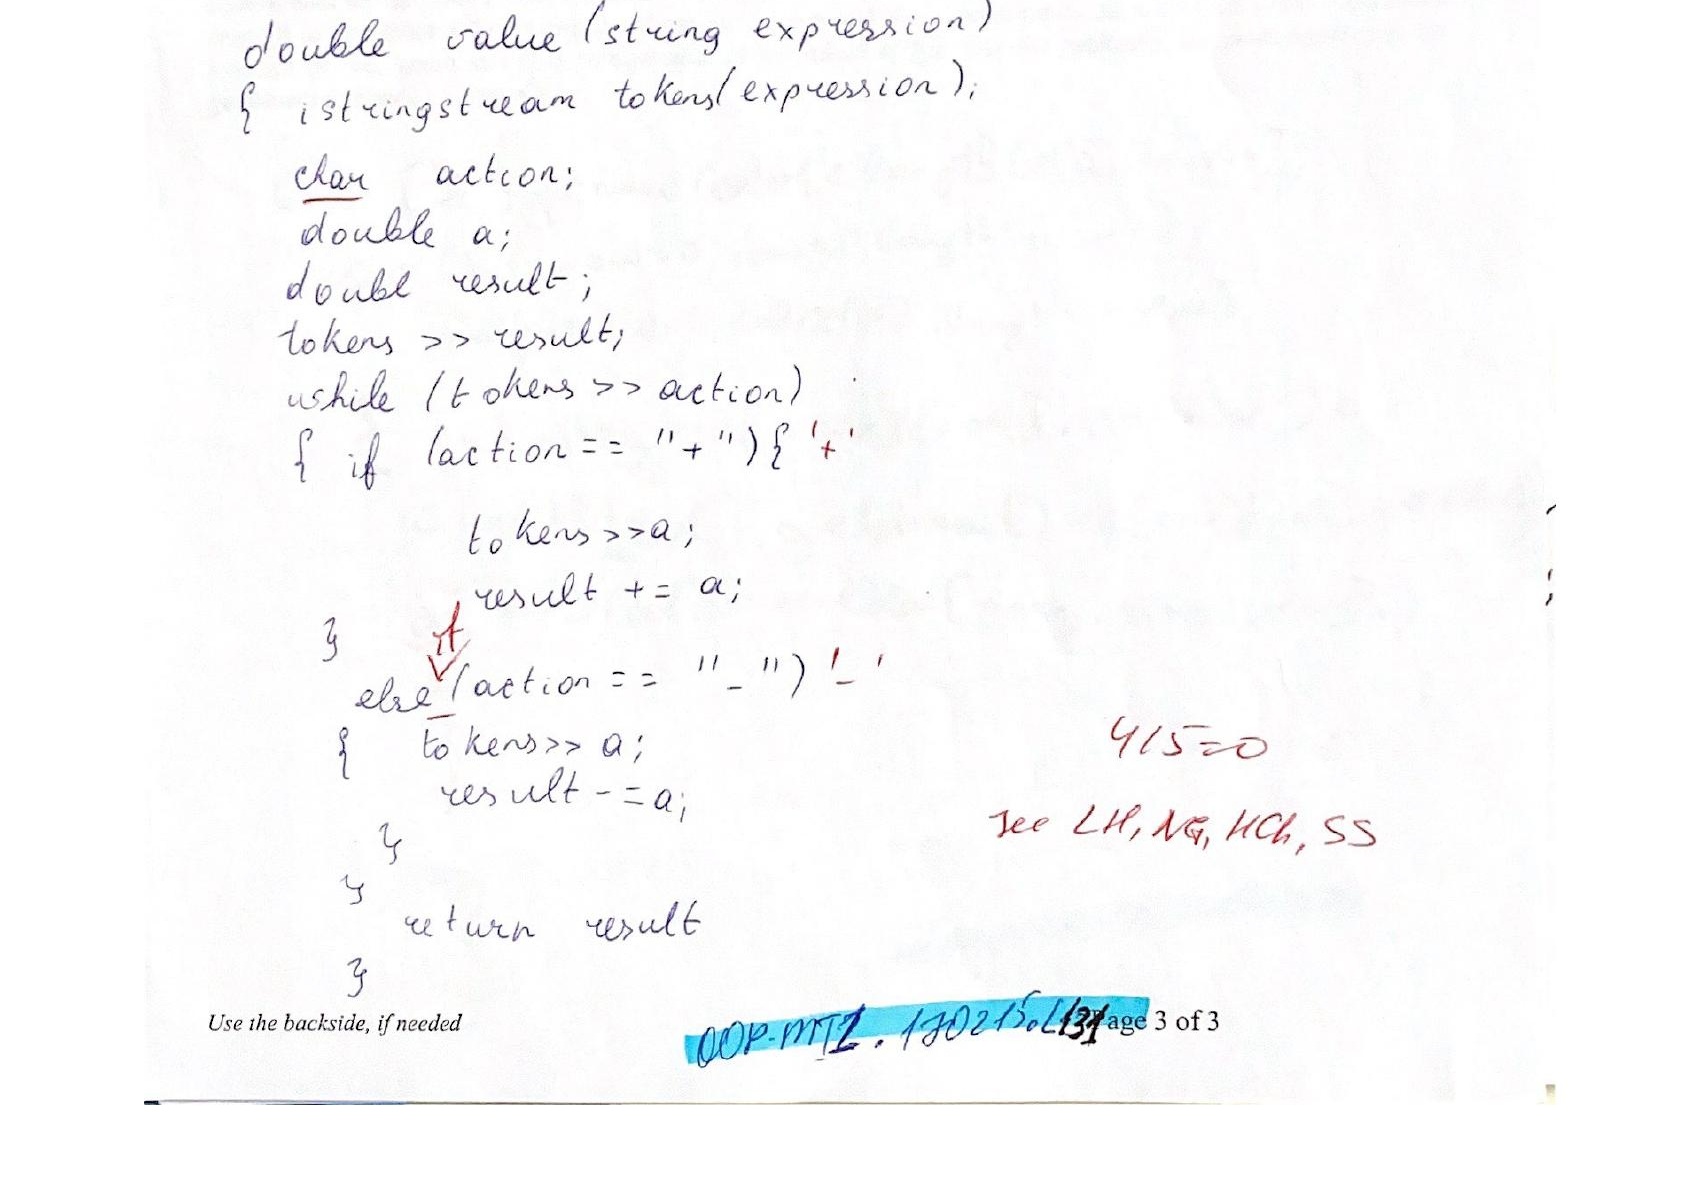 double value (string expression)
{ istringstream tokens(expression);
char action;
double a;
doubl result;
tokens >> result;
while (tokens >> action)
{ if (action == "+"){ '+'
tokens >>a;
result += a;
}
if
else (action == "-") '-'
{ tokens>> a;
result -=a;
}
}
return result
}
415=0
see LH, NG, HCh, SS
Use the backside, if needed
OOP-MT1. age 3 of 3